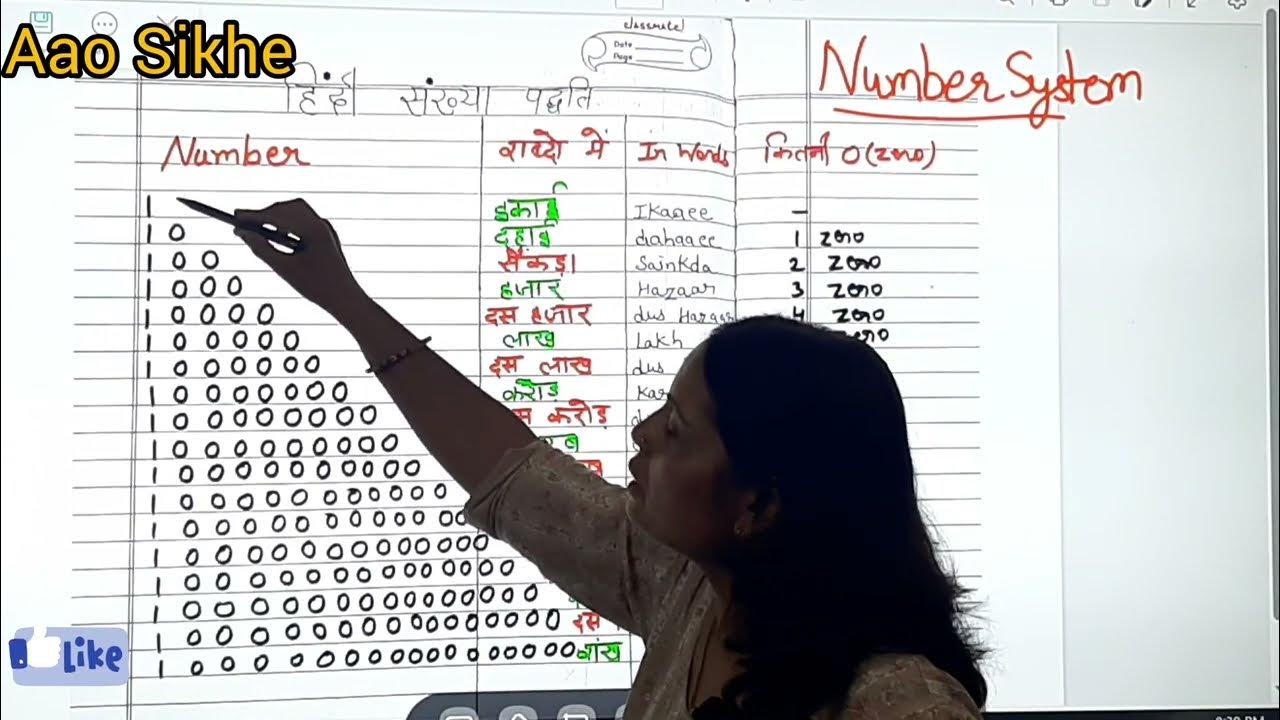 Aao Sikhe
classmate
Date
Page
Number System
हिंदी संख्या पद्धति
Number शब्दो में In Words कितनी 0 (zero)
1 इकाई Ikaaee –
10 दहाई dahaaee 1 zero
100 सैंकड़ा Sainkda 2 zero
1000 हजार Hazaar 3 zero
10000 दस हजार dus Hazaar 4 zero
100000 लाख Lakh zero
1000000 दस लाख dus
10000000 करोड़ Kar
100000000 करोड़
1000000000
10000000000
100000000000
1000000000000
10000000000000
100000000000000
1000000000000000
10000000000000000 दस
100000000000000000 शंख
Like